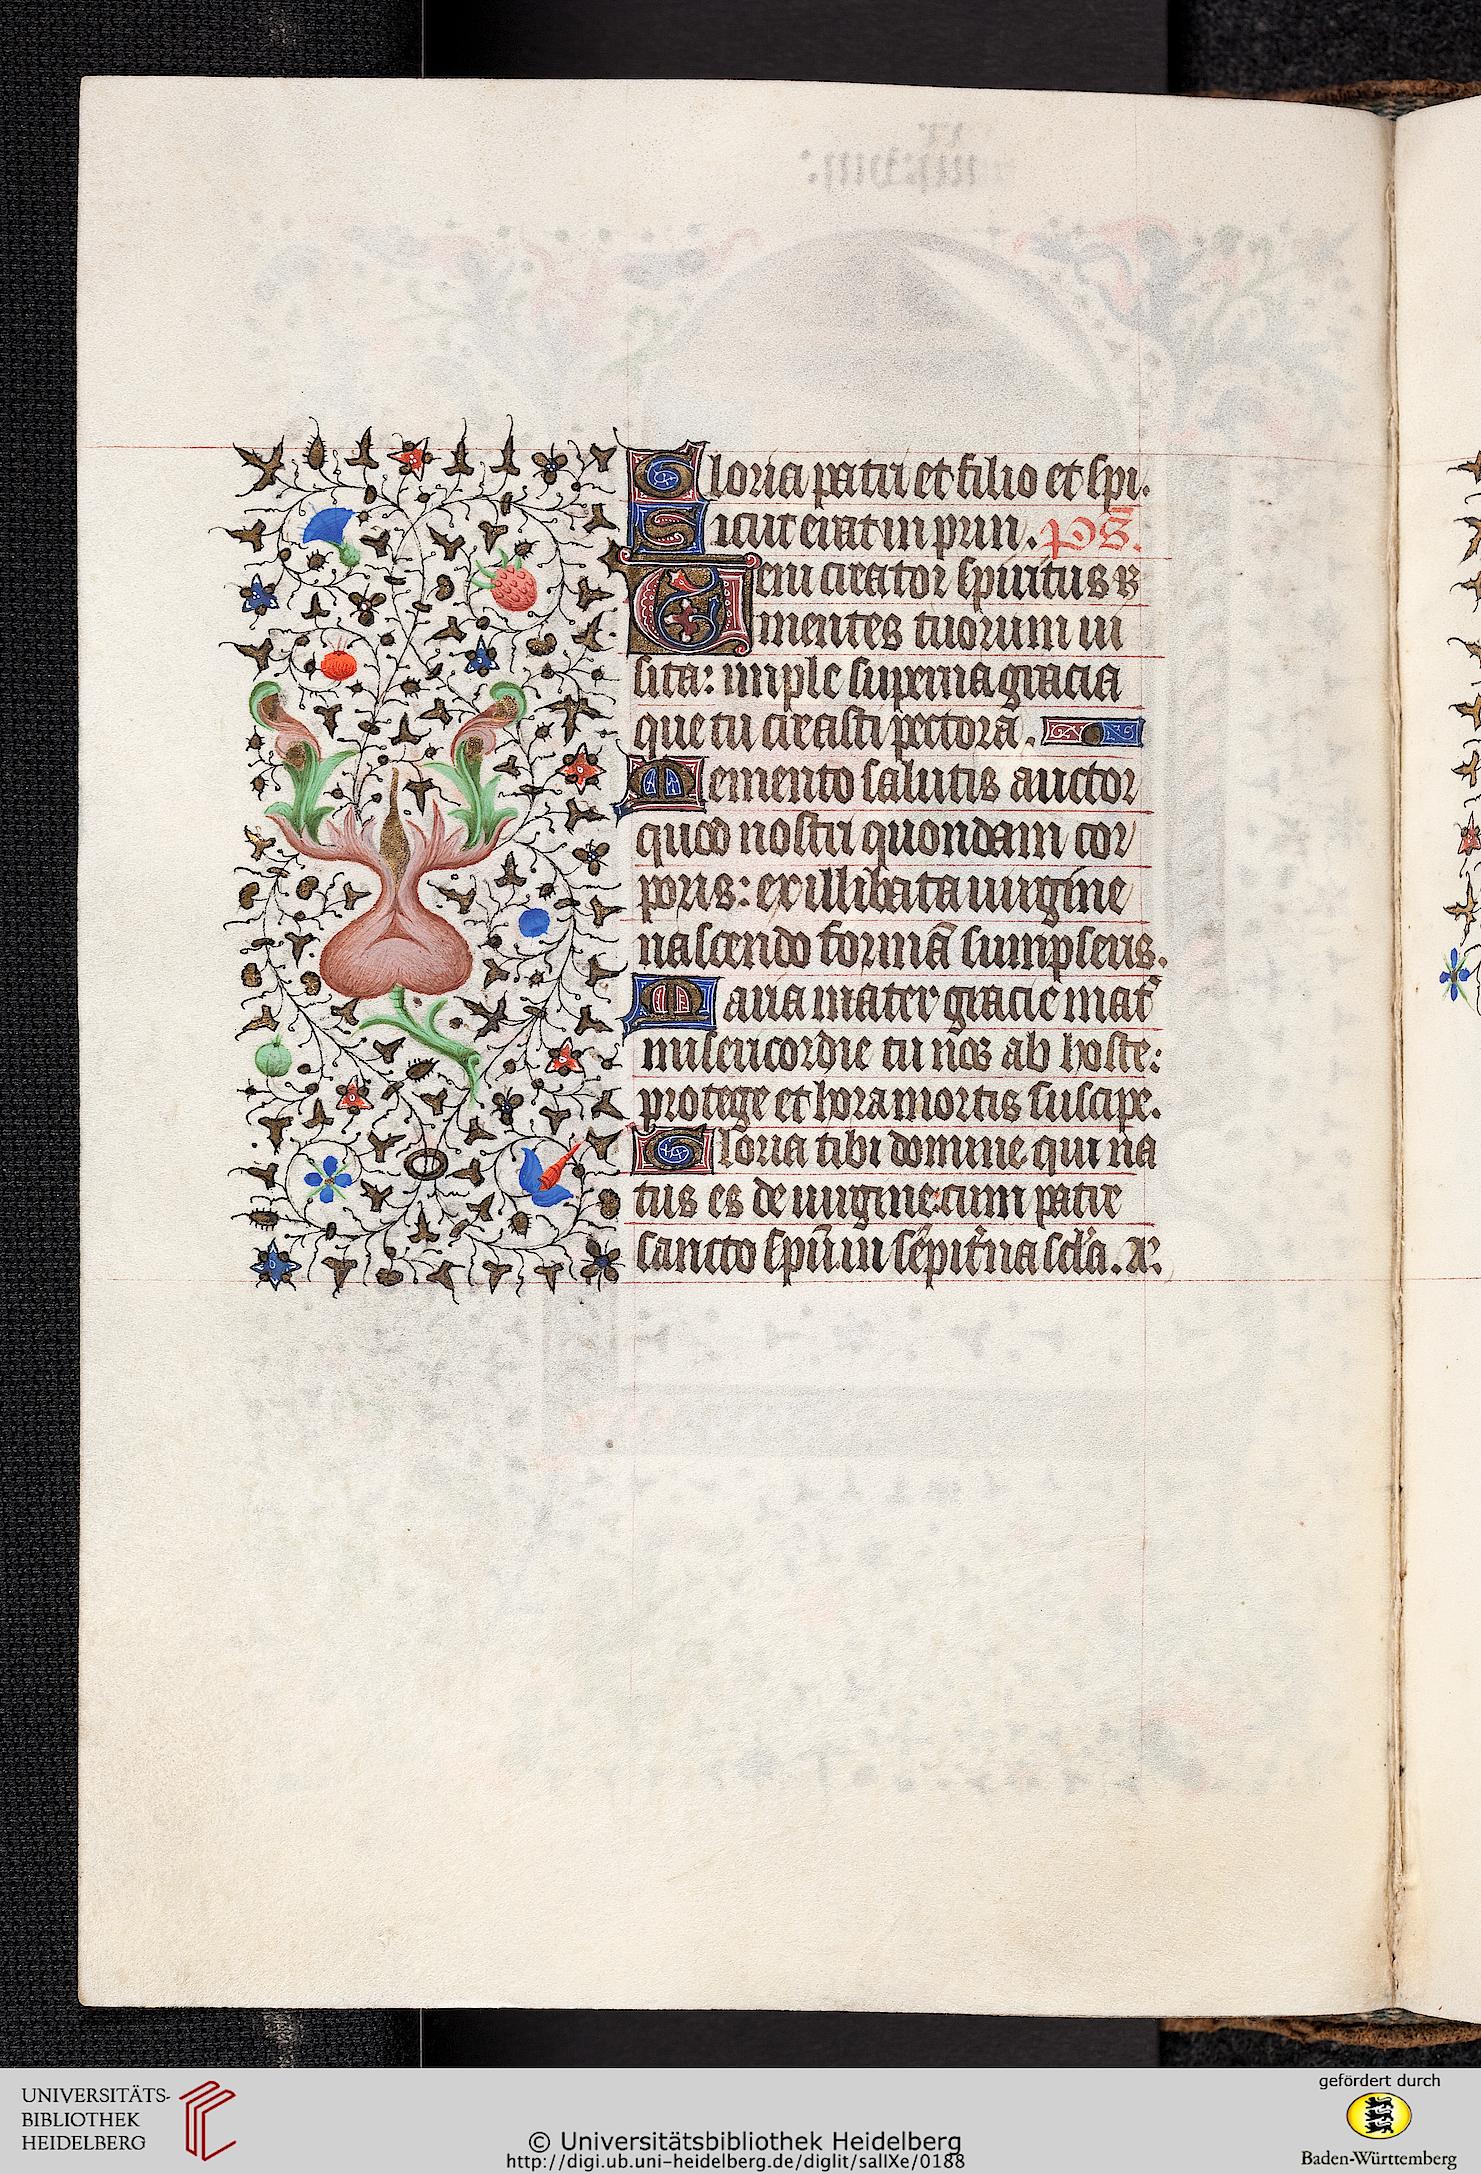 Gloria patri et filio et spi.
Sicut erat in prin. ps.
Veni creator spiritus
mentes tuorum ui
sita: imple superna gracia
que tu creasti pectora.
Memento salutis auctor
quod nostri quondam cor
poris: ex illibata uirgine
nascendo formā sumpseris.
Maria mater gracie mat̄
misericordie tu nos ab hoste:
protege et hora mortis suscipe.
Gloria tibi domine qui na
tus es de uirgine: cum patre
sancto spū in sēpit̄na scl̄a. A.
UNIVERSITÄTS-
BIBLIOTHEK
HEIDELBERG
© Universitätsbibliothek Heidelberg
http://digi.ub.uni-heidelberg.de/diglit/salIXe/0188
gefördert durch
Baden-Württemberg